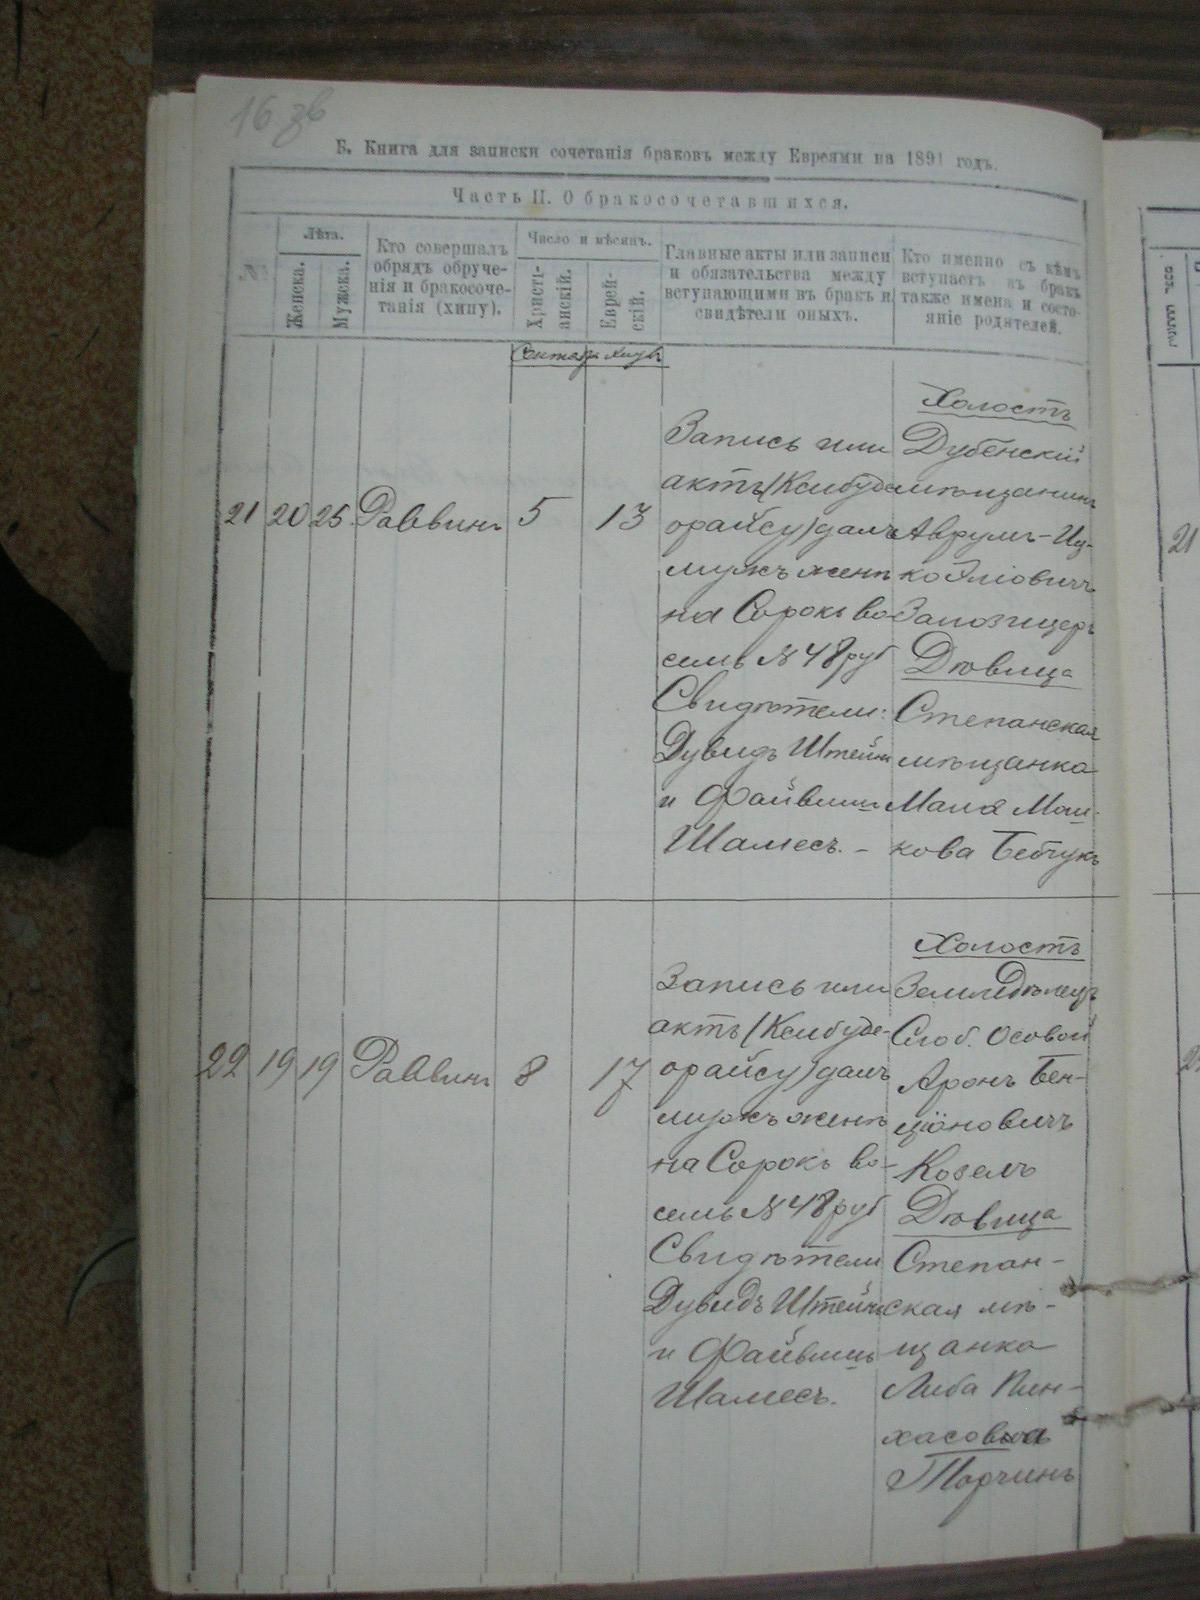 16 зв
Б. Книга для записки сочетанія браковъ между Евреями на 1891 годъ.
Часть II. О бракосочетавшихся.
Лѣта.
Женска.
Мужска.
Кто совершалъ
обрядъ обруче-
нія и бракосоче-
танія (хипу).
Число и мѣсяцъ.
Христі-
анскій.
Еврей-
скій.
Главные акты или записи
и обязательства между
вступающими въ бракъ и
свидѣтели оныхъ.
Кто именно съ кѣмъ
вступаетъ въ бракъ
также имена и состо-
яніе родителей.
21 20 25 Раввинъ 5 13
Запись или
актъ (Ксибуде-
орайсу) далъ
мужъ женѣ
на Сорокъ во-
семь № 48 руб
Свидѣтели:
Дувидъ Штейнъ
и Файвишъ
Шамесъ. –
Холостъ
Дубенскій
мѣщанинъ
Аврумъ-Иц-
ко Эліовичъ
Дѣвица
Степанская
мѣщанка
Маня Мош-
кова Бебчукъ
22 19 19 Раввинъ 8 17
Запись или
актъ (Ксибуде-
орайсу) далъ
мужъ женѣ
на Сорокъ во-
семь № 48 руб
Свидѣтели
Дувидъ Штейнъ
и Файвишъ
Шамесъ.
Холостъ
Земледѣлецъ
Слоб. Осовой
Аронъ Бен-
ціоновичъ
Козелъ
Дѣвица
Степан-
ская мѣ-
щанка
Либа Пин-
хасовна
Торчинъ
21